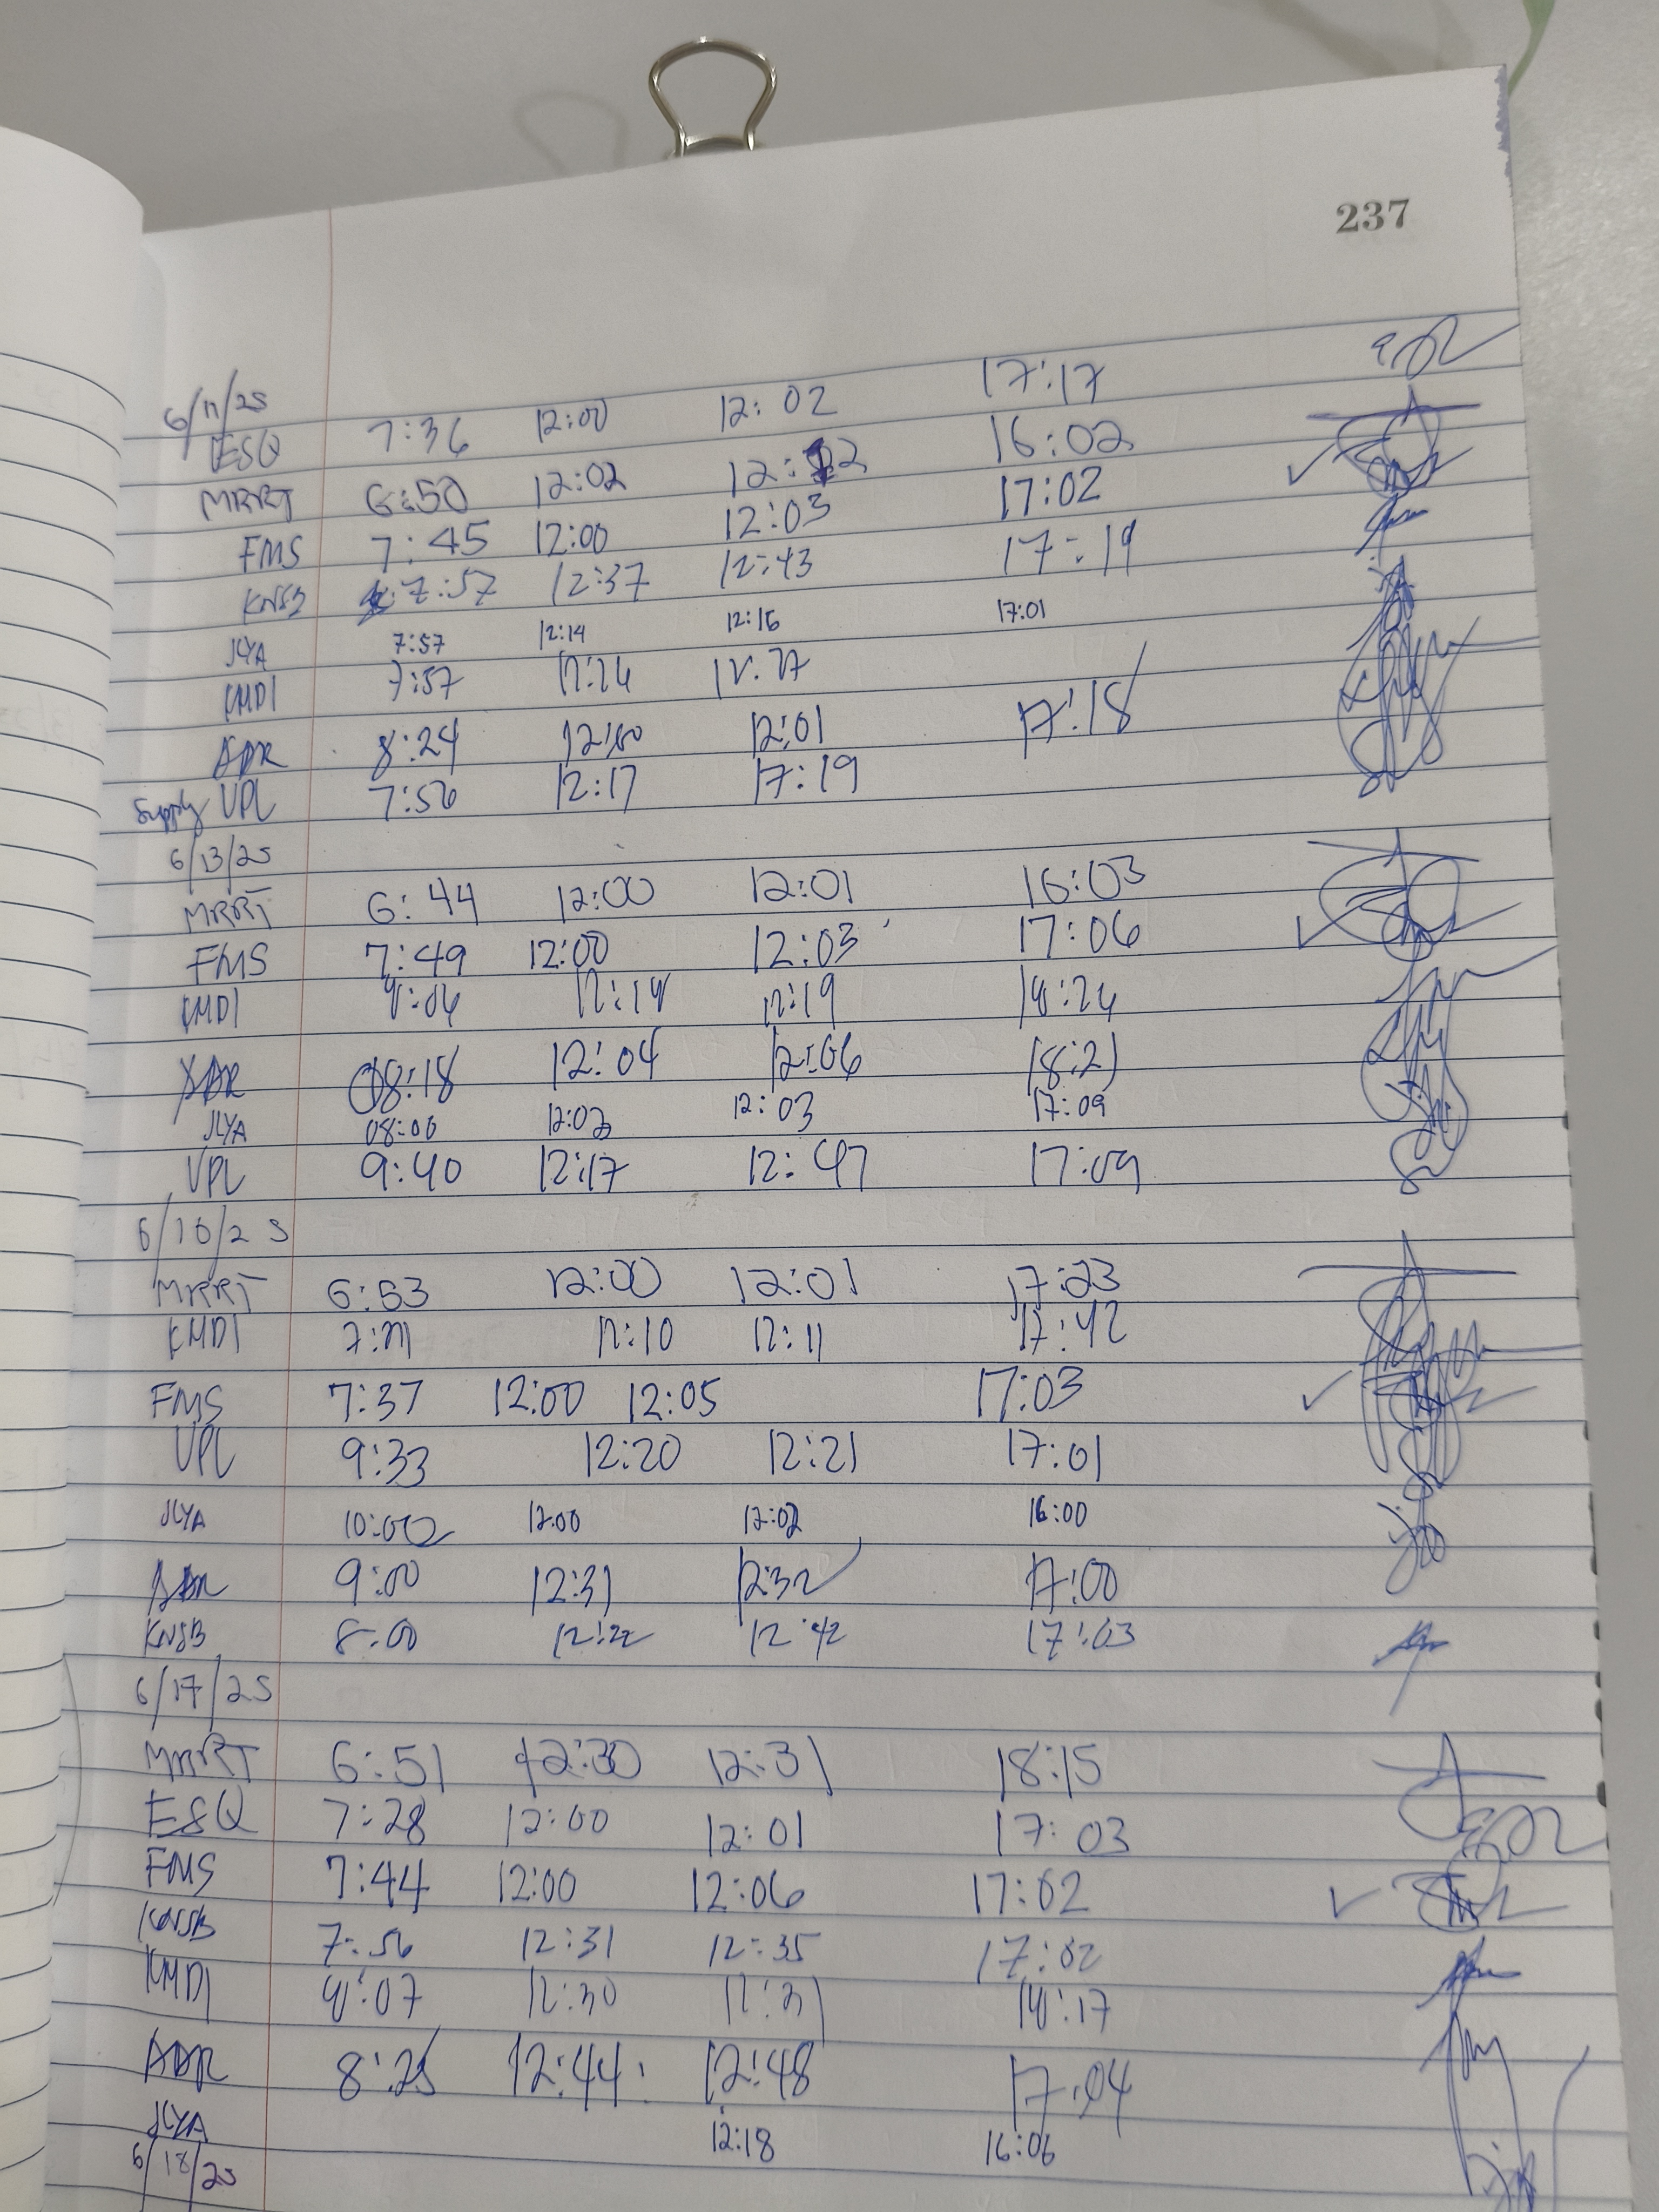 237
6/11/25
ESQ 7:36 12:00 12:02 17:17
MRRT 6:50 12:02 12:12 16:02
FMS 7:45 12:00 12:03 17:02
KNSB 7:57 12:37 12:43 17:19
JLYA 7:57 12:14 12:16 17:01
KMDI 7:57 12:26 12:27
ADR 8:24 12:00 12:01 17:18
Supply VPL 7:56 12:17 17:19
6/13/25
MRRT 6:44 12:00 12:01 16:03
FMS 7:49 12:00 12:03 17:06
KMDI 8:06 12:18 12:19 18:26
ADR 08:18 12:04 12:06 18:21
JLYA 08:00 12:02 12:03 17:09
VPL 9:40 12:17 12:47 17:09
6/16/25
MRRT 6:53 12:00 12:01 17:23
KMDI 12:10 12:11 17:42
FMS 7:37 12:00 12:05 17:03
VPL 9:33 12:20 12:21 17:01
JLYA 10:00 12:00 12:02 16:00
ADR 9:00 12:31 12:32 17:00
KNSB 8:00 12:22 12:42 17:03
6/17/25
MRRT 6:51 12:30 12:31 18:15
ESQ 7:28 12:00 12:01 17:03
FMS 7:44 12:00 12:06 17:02
KNSB 7:56 12:31 12:35 17:02
KMDI 8:07 12:30 12:31 18:17
ADR 8:25 12:44 12:48 17:04
JLYA 12:18 16:06
6/18/25